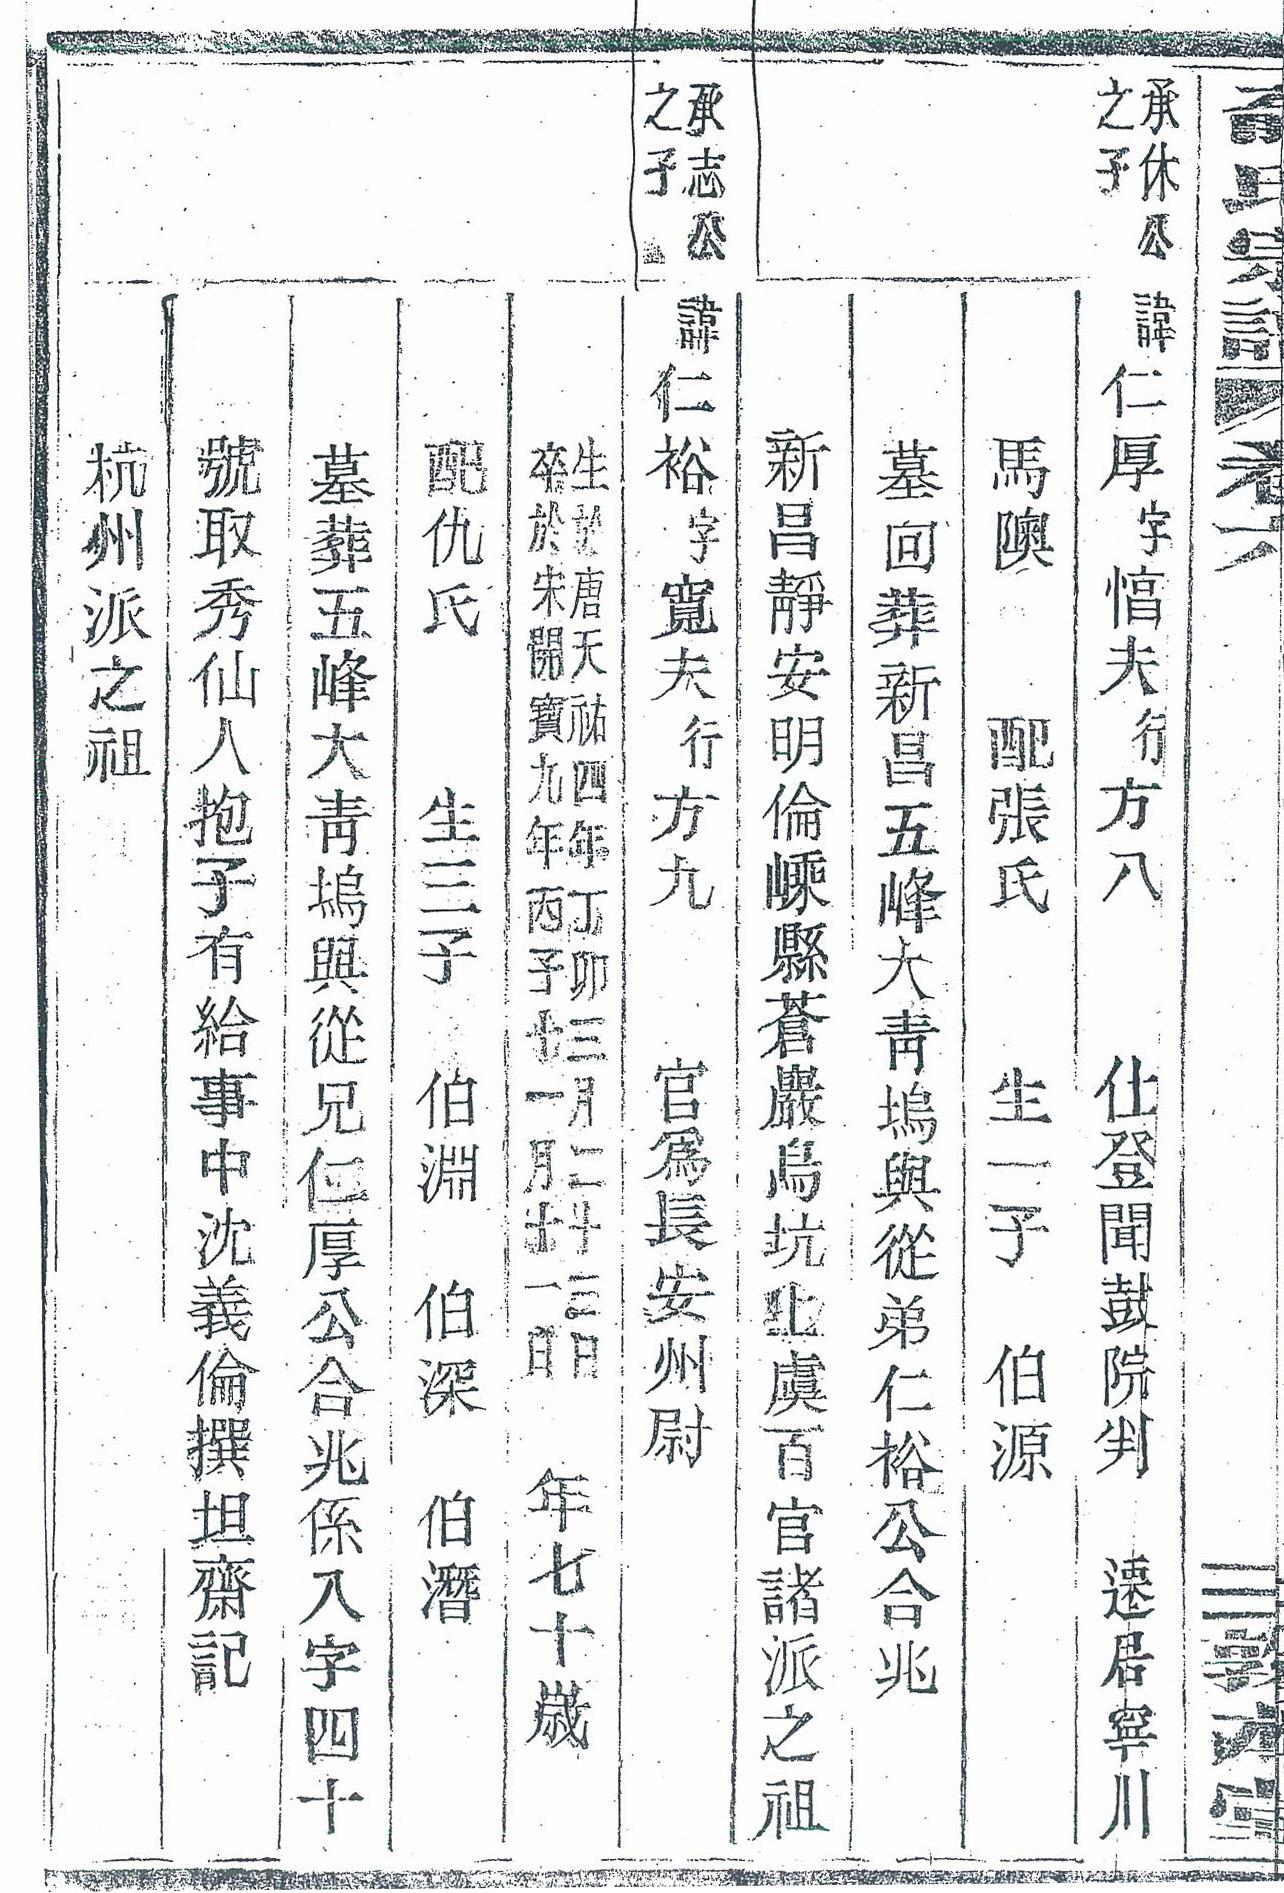 氏宗譜 卷六
三 敦本堂
承休公
之子
諱仁厚字愭夫行方八 仕登聞鼓院判 遷居寧川
馬隩 配張氏 生一子 伯源
墓回葬新昌五峰大青塢與從弟仁裕公合兆
新昌靜安明倫嵊縣蒼巖烏坑上虞百官諸派之祖
承志公
之子
諱仁裕字寬夫行方九 官為長安州尉
生於唐天祐四年丁卯三月二十三日
卒於宋開寶九年丙子十一月十一日
年七十歲
配仇氏 生三子 伯淵 伯深 伯潛
墓葬五峰大青塢與從兄仁厚公合兆係入字四十
號取秀仙人抱子有給事中沈義倫撰坦齋記
杭州派之祖